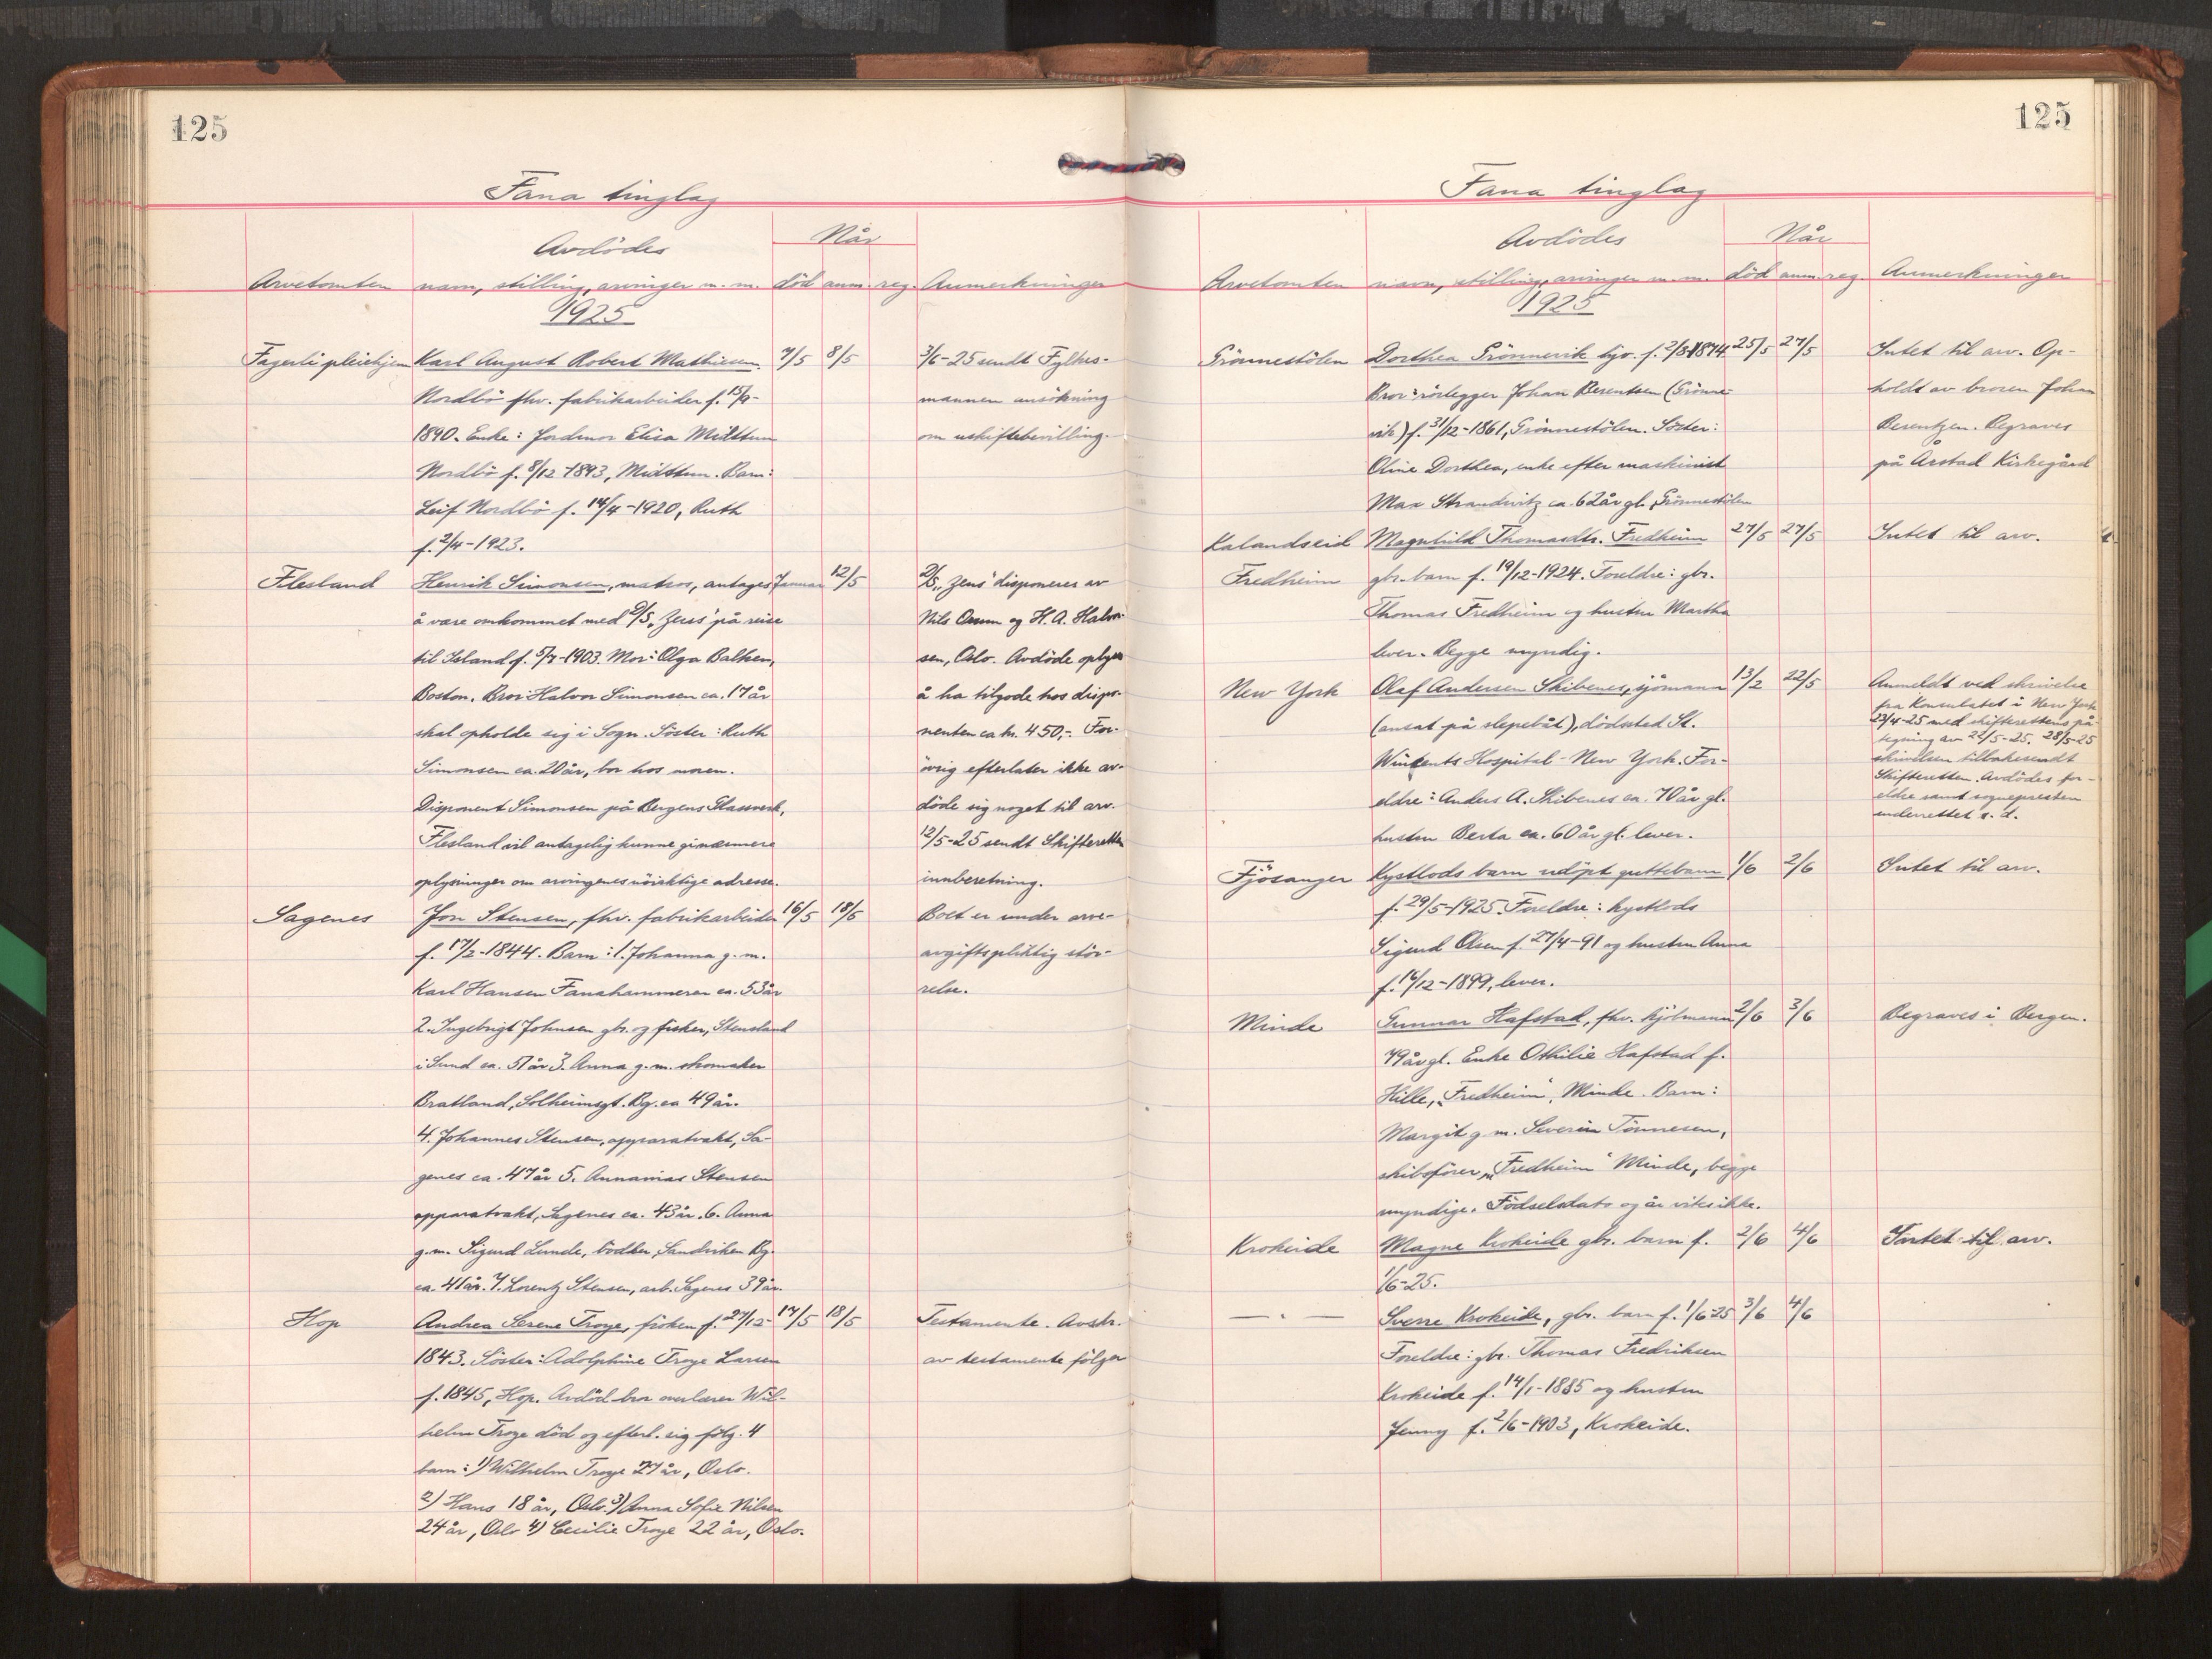 125
Fana tinglag
Avdödes
Når
Arvetomten navn, stilling, arvinger m. m. död anm. reg. Anmerkninger
1925
Fagerli pleiehjem Karl August Robert Mathiesen 7/5 8/5 3/6-25 sendt Fylkes-
Nordbö fhv. fabrikarbeider f. 15/9- mannen ansökning
1890. Enke: Jordmor Elisa Midttun om uskiftebevilling.
Nordbö f. 8/12-1893, Midttun. Barn:
Leif Nordbö f. 14/4-1920, Ruth
f. 2/4-1923.
Flesland Henrik Simonsen, matros, antages Januar 12/5 D/S „Zeus" disponeres av
å være omkommet med D/S „Zeus" på reise Nils Onum og H. A. Halvor-
til Island f. 5/7-1903. Mor: Olga Balken, sen, Oslo. Avdöde oplyses
Boston. Bror: Halvor Simonsen ca. 17 år å ha tilgode hos dispo-
skal opholde sig i Sogn. Söster: Ruth nenten ca kr. 450,-. For-
Simonsen ca. 20 år, bor hos moren. övrig efterlater ikke av-
Disponent Simonsen på Bergens Glassverk, döde sig noget til arv.
Flesland vil antagelig kunne gi nærmere 12/5-25 sendt Skifteretten
oplysninger om arvingenes nöiaktige adresse. innberetning.
Sagenes Jon Stensen, fhv. fabrikarbeider 16/5 18/5 Boet er under arve-
f. 17/2-1844. Barn: 1. Johanna g. m. avgiftspliktig stör-
Karl Hansen Fanahammeren ca. 53 år relse.
2. Ingebrigt Johnsen gbr. og fisker, Stensland
i Sund ca. 51 år 3. Anna g. m. skomaker
Bratland, Solheimsgt. Bg. ca 49 år.
4. Johannes Stensen, apparatvakt, Sa-
genes ca. 47 år 5. Annanias Stensen
apparatvakt, Sagenes ca. 43 år. 6. Anna
g. m. Sigurd Lunde, bödker, Sandviken Bg.
ca. 41 år. 7. Lorentz Stensen, arb. Sagenes 39 år.
Hop Andrea Serene Troye, fröken f. 27/12- 17/5 18/5 Testamente. Avskr.
1843. Söster: Adolphine Troye Larsen av testamente fölger
f. 1845, Hop. Avdöd bror overlærer Wil-
helm Troye död og efterl. sig fölg. 4
barn: 1) Wilhelm Troye 27 år, Oslo.
2) Hans 18 år, Oslo. 3) Anna Sofie Nilsen
24 år, Oslo 4) Cecilie Troye 22 år, Oslo.
125
Fana tinglag
Avdödes
Når
Arvetomten navn, stilling, arvinger m. m. död anm. reg. Anmerkninger
1925
Grönnestölen Dorthea Grönnevik syv. f. 2/8-1874 25/5 27/5 Intet til arv. Op-
Bror: rörlegger Johan Berentsen (Grönne- holdt av broren Johan
vik) f. 31/12-1861, Grönnestölen. Söster: Berentzen. Begraves
Oline Dorthea, enke efter maskinist på Årstad Kirkegård
Max Strandwitz ca. 62 år gl. Grönnestölen
Kalandseid Magnhild Thomasdtr. Fredheim 27/5 27/5 Intet til arv.
Fredheim gbr. barn f. 19/12-1924. Foreldre: gbr.
Thomas Fredheim og hustru Martha
lever. Begge myndig.
New York Olaf Andersen Skibenes, sjömann 13/2 22/5 Anmeldt ved skrivelse
fra Konsulatet i New York
(ansat på slepebåt), dödssted St. 23/4-25 med skifterettens på-
tegning av 22/5-25. 28/5-25
Wincents Hospital - New York. For- skrivelsen tilbakesendt
Skifteretten. Avdödes for-
eldre: Anders A. Skibenes ca. 70 år gl. eldre samt sognepresten
underrettet s. d.
hustru Berta ca. 60 år gl. lever.
Fjösanger Kystlods barn udöpt guttebarn 1/6 2/6 Intet til arv.
f. 29/5-1925. Foreldre: kystlods
Sigurd Olsen f. 27/4-91 og hustru Anna
f. 16/12-1899, lever.
Minde Gunnar Hafstad, fhv. kjölmann 2/6 3/6 Begraves i Bergen.
79 år gl. Enke Othilie Hafstad f.
Hille, „Fredheim", Minde. Barn:
Margit g. m. Severin Tönnesen,
skibsförer, „Fredheim" Minde, begge
myndige. Födselsdato og år vites ikke.
Krokeide Magne Krokeide gbr. barn f. 2/6 4/6 Intet til arv.
1/6-25.
— " — Sverre Krokeide, gbr. barn f. 1/6-25 3/6 4/6
Foreldre: gbr. Thomas Fredriksen
Krokeide f. 14/1-1885 og hustru
Jenny f. 2/6-1903, Krokeide.